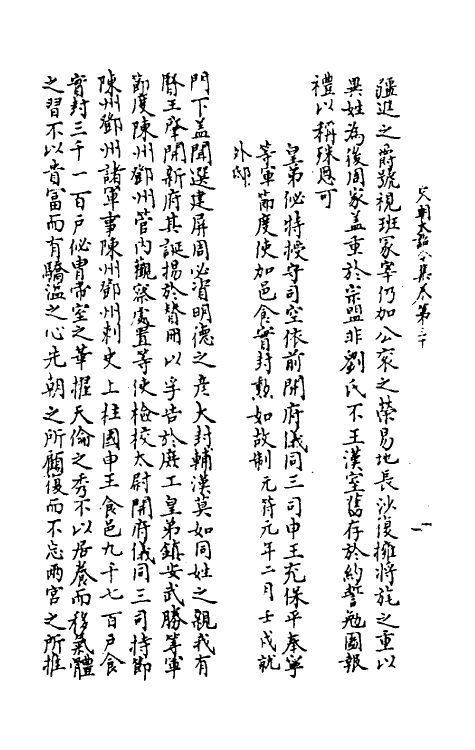 宋朝大詔令集卷第三十
疆進之爵號視班冢宰仍加公袞之榮易地長沙復擁將旄之重以
異姓為後周家蓋重於宗盟非劉氏不王漢室舊存於約誓勉圖報
禮以稱殊恩可
皇弟佖特授守司空依前開府儀同三司申王充保平奉寧
等軍節度使加邑食實封勲如故制元符元年二月壬戌就
外邸
門下蓋聞選建屏周必資明德之彥大封輔漢莫如同姓之親我有
賢王肇開新府其誕揚於贊冊以孚告於庶工皇弟鎮安武勝等軍
節度陳州鄧州管內觀察處置等使檢校太尉開府儀同三司持節
陳州鄧州諸軍事陳州鄧州刺史上柱國申王食邑九千七百戶食
實封三千一百戶佖胄帝室之華握天倫之秀不以居養而移氣體
之習不以貴富而有驕溫之心先朝之所顧復而不忘兩宮之所推
一